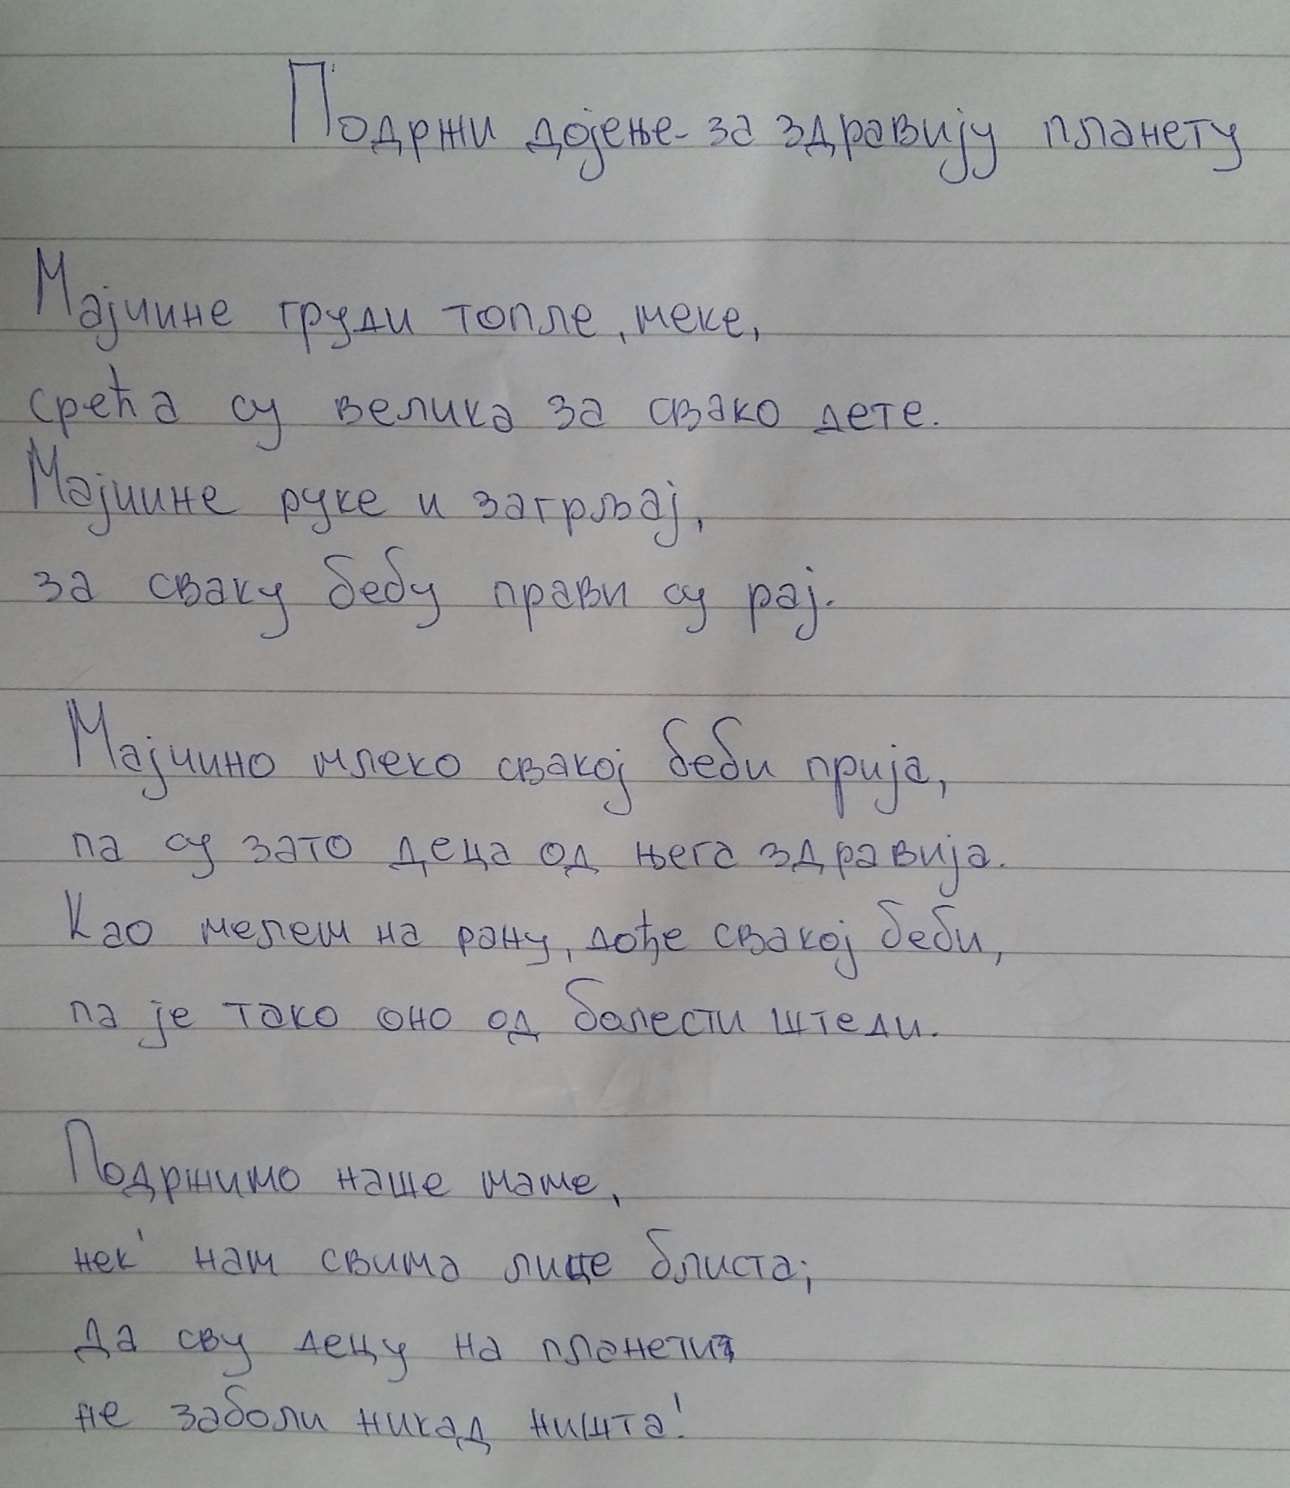 Подржи дојење - за здравију планету
Мајчине груди топле, меке,
срећа су велика за свако дете.
Мајчине руке и загрљај,
за сваку бебу прави су рај.
Мајчино млеко свакој беби прија,
па су зато деца од њега здравија.
Као мелем на рану, дође свакој беби,
па је тако оно од болести штеди.
Подржимо наше маме,
нек' нам свима лице блиста;
Да сву децу на планети,
не заболи никад ништа!